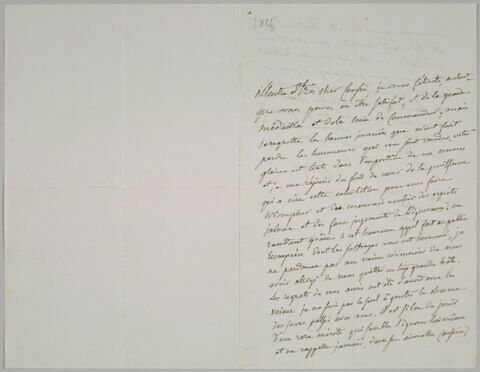 illustre et très cher Confrère, je vous félicite, autant
que vous pouvez en être satisfait, et de la grande
médaille et de la croix de Commandeur, mais
je regrette les bonnes journées que m'ont fait
perdre les honneurs qui vous sont rendus, votre
gloire est toute dans l'exposition de vos œuvres
et je me réjouis du fond du cœur de la puissance
qui a créé cette exhibition pour vous faire
triompher et des mauvais vouloirs des esprits
jaloux et des faux jugements de l'ignorance; en
rendant grâce à cet heureux appel fait au public
Européen dont les suffrages vous ont couronné, je
ne pardonne pas aux vaines cérémonies de vous
avoir obligé de nous quitter en trop grande hâte,
les regrets de mes amis ont été d'accord avec les
miens, je ne suis pas le seul à goûter le charme
des jours passés avec vous. il est si bon de jouir
d'un rare mérite qui semble s'ignorer lui-même
et ne rappelle jamais, dans son aimable